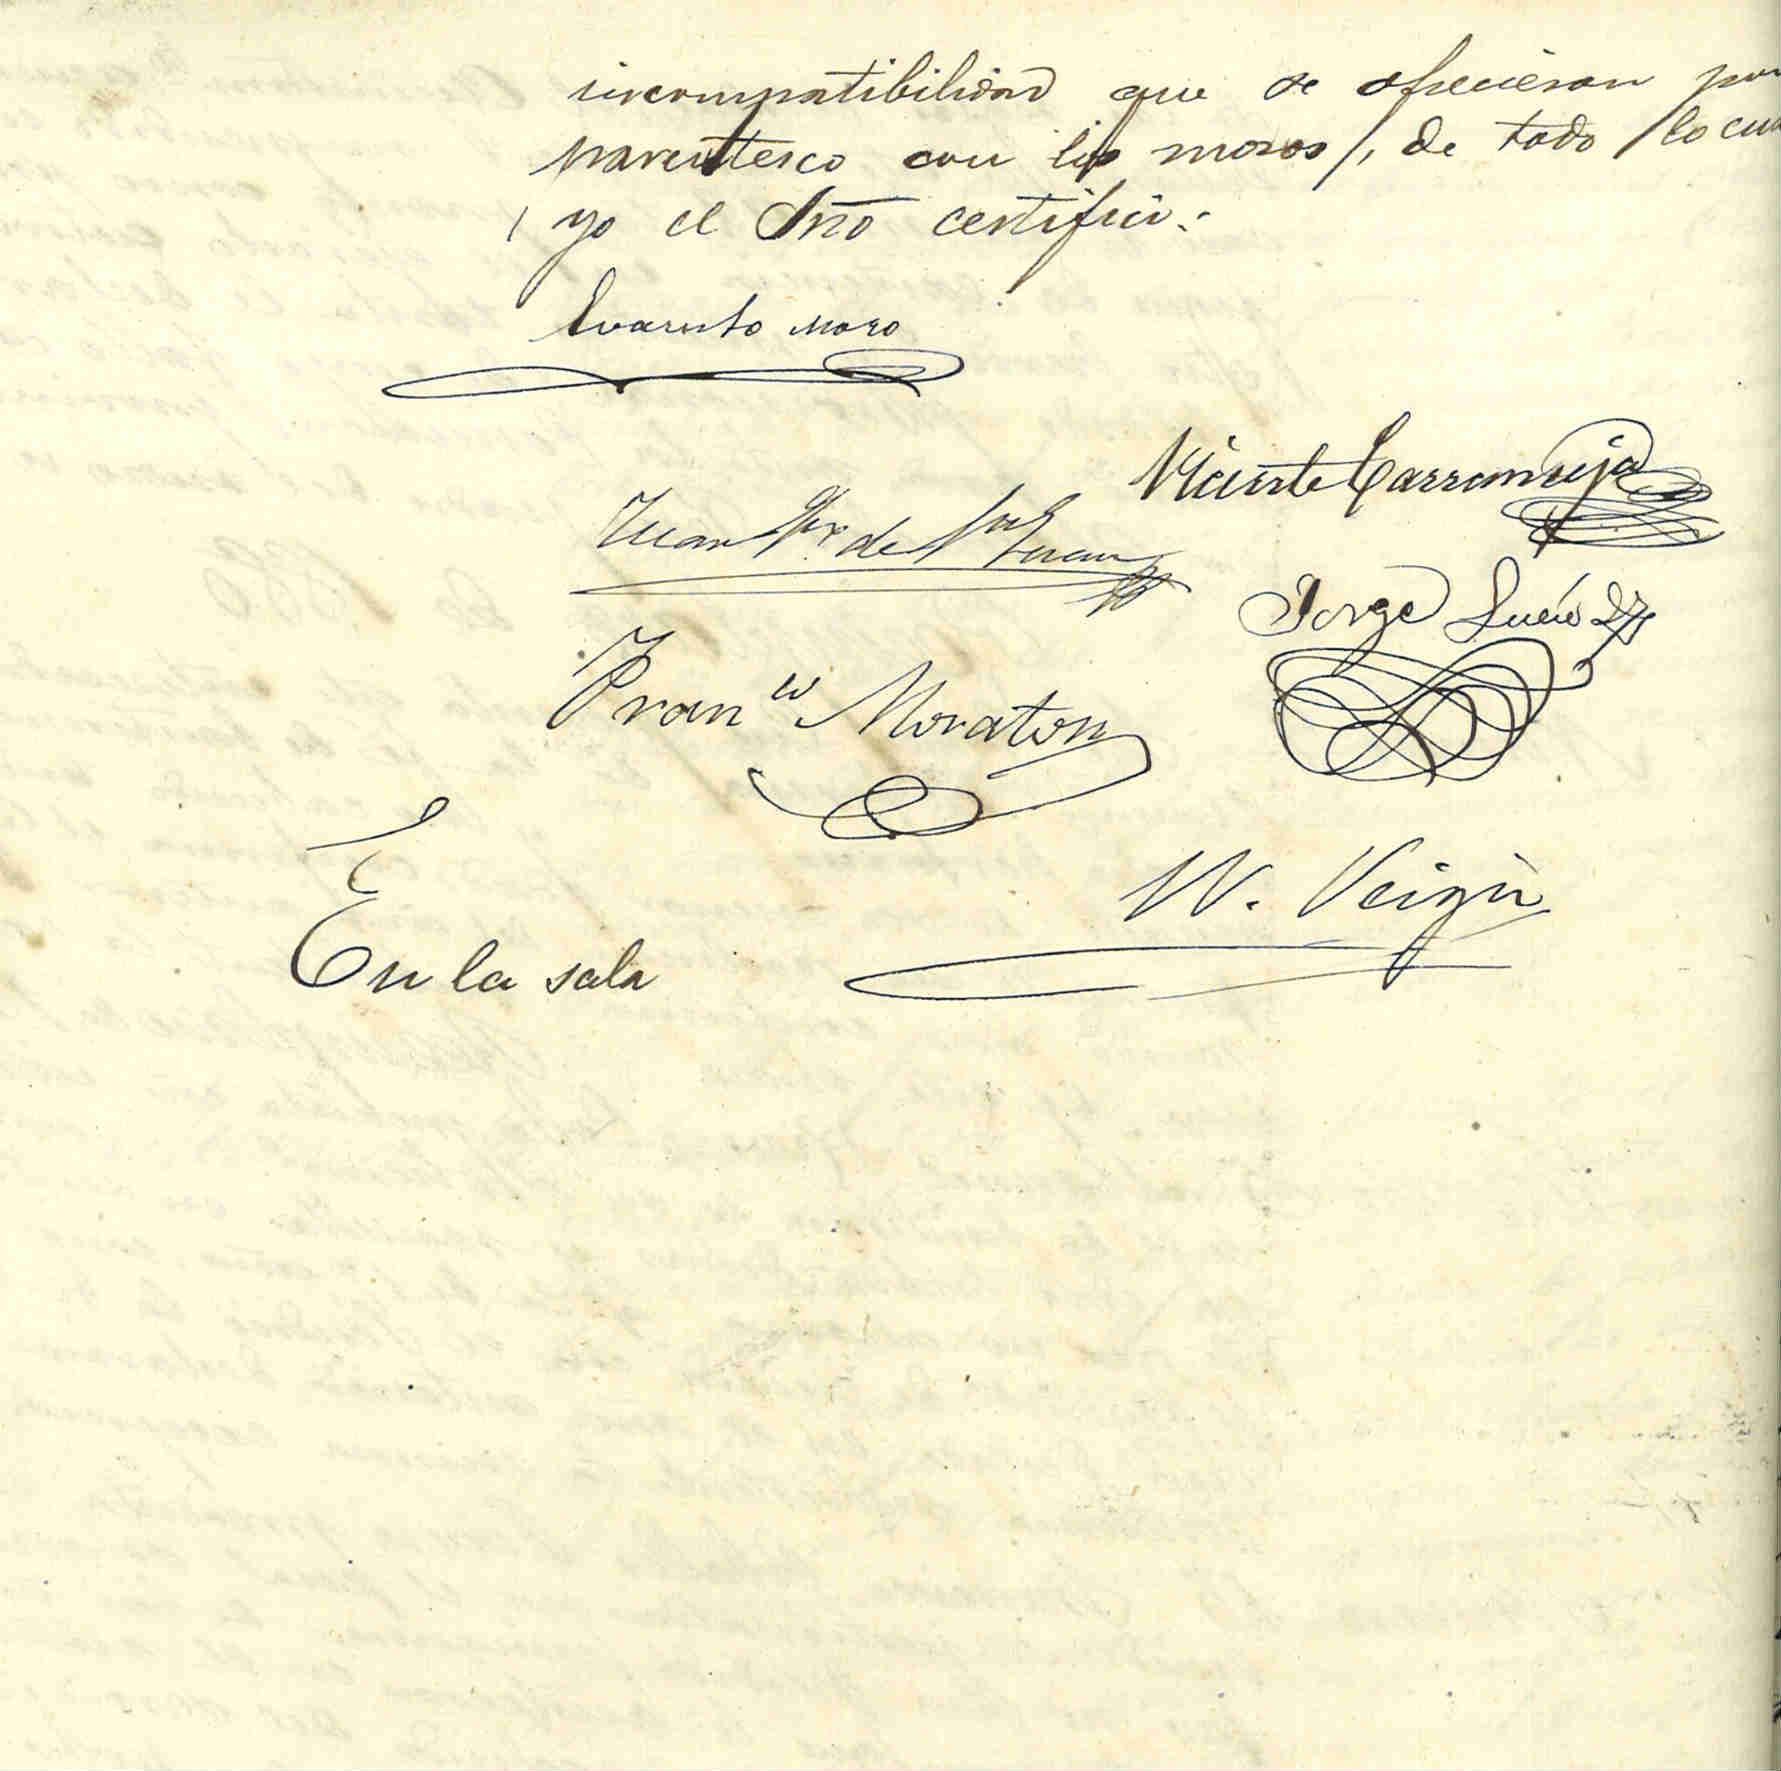 incompatibilidad que se ofrecieran por
parentesco con los mozos, de todo lo cual
yo el Srio certifico.
Evaristo Moro
Vicente Carramieja
Juan de
Jorge Lucio
Fran.co Moraton
W. Veiga
En la sala